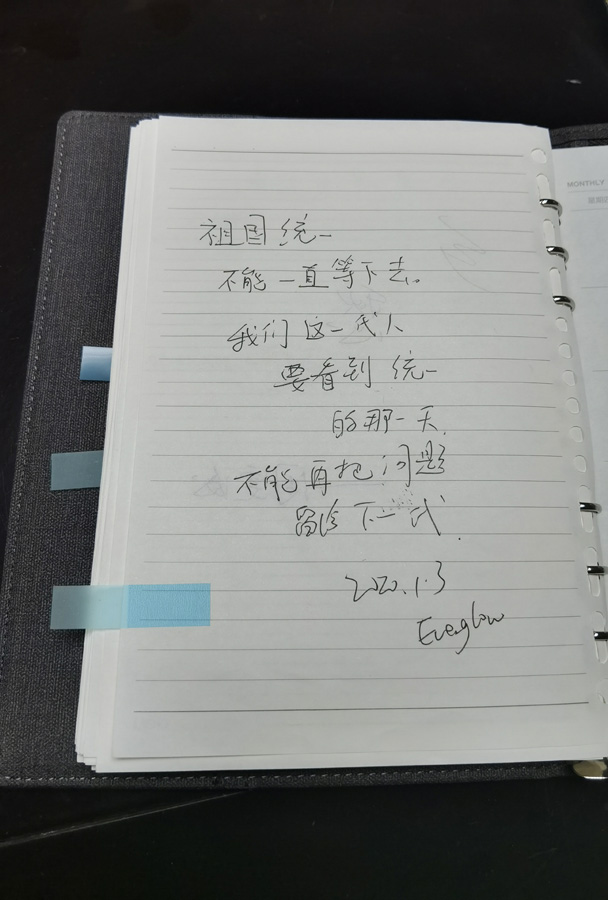 祖国统一
不能一直等下去。
我们这一代人
要看到统一
的那一天.
不能再把问题
留给下一代.
2020.1.3
Everglow
MONTHLY